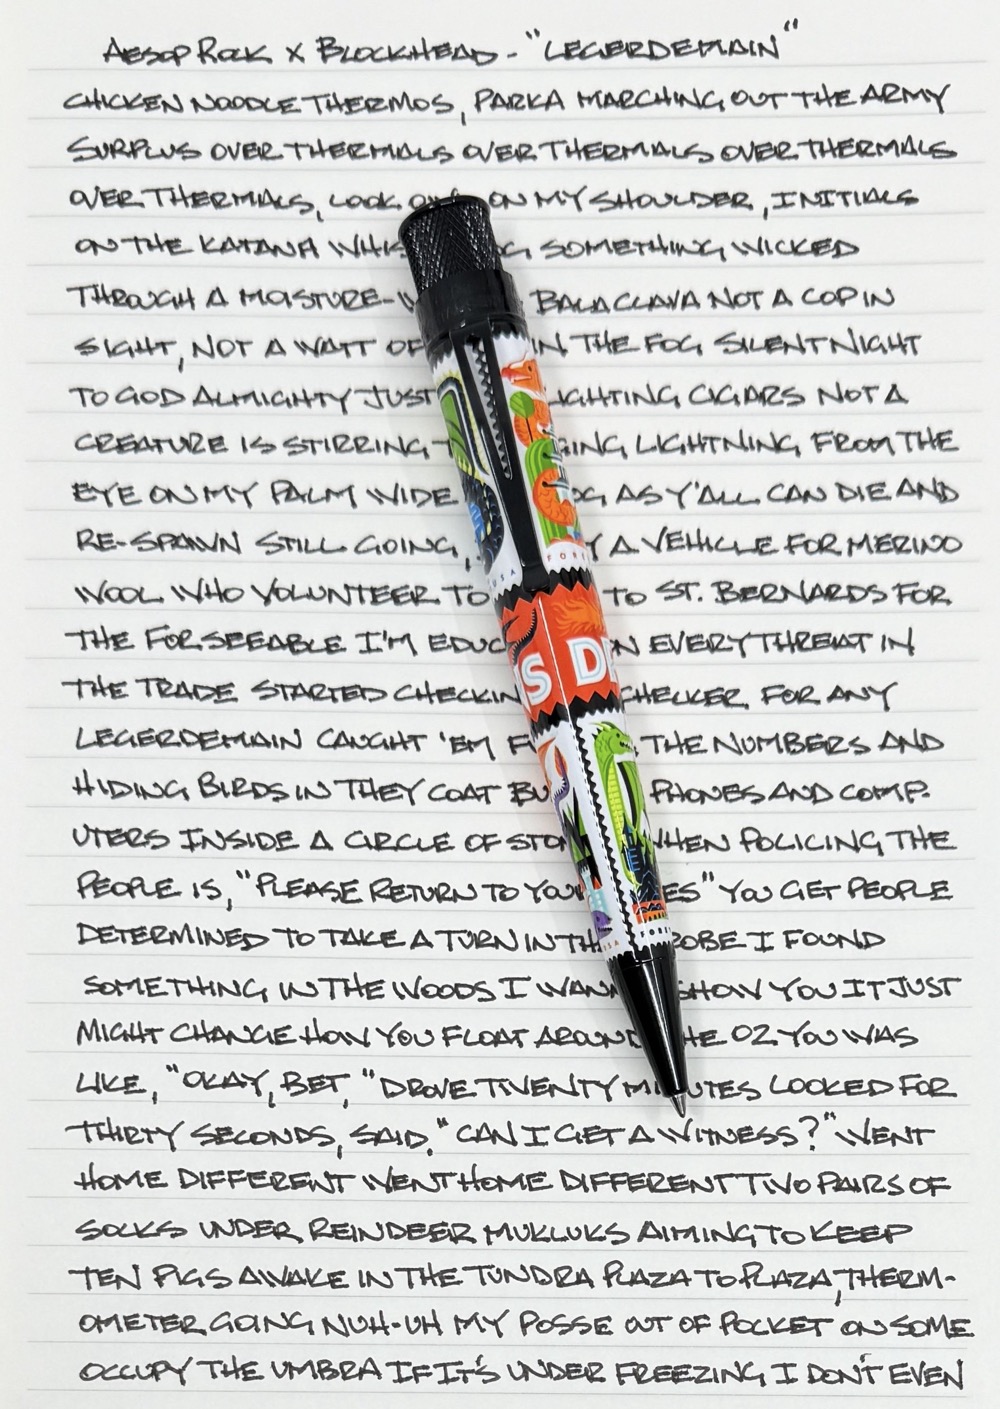 AESOP ROCK X BLOCKHEAD - "LEGERDEMAIN"
CHICKEN NOODLE THERMOS, PARKA MARCHING OUT THE ARMY
SURPLUS OVER THERMALS OVER THERMALS OVER THERMALS
OVER THERMALS, LOOK ON MY SHOULDER, INITIALS
ON THE KATANA SOMETHING WICKED
THROUGH A MOISTURE- BALACLAVA NOT A COP IN
SIGHT, NOT A WATT OF IN THE FOG SILENT NIGHT
TO GOD ALMIGHTY JUST LIGHTING CIGARS NOT A
CREATURE IS STIRRING LIGHTNING FROM THE
EYE ON MY PALM WIDE AS Y'ALL CAN DIE AND
RE-SPAWN STILL GOING, A VEHICLE FOR MERINO
WOOL WHO VOLUNTEER TO TO ST. BERNARDS FOR
THE FORSEEABLE I'M EDUC N EVERY THREAT IN
THE TRADE STARTED CHECKIN CHECKER FOR ANY
LEGERDEMAIN CAUGHT 'EM THE NUMBERS AND
HIDING BIRDS IN THEY COAT BU PHONES AND COMP-
UTERS INSIDE A CIRCLE OF STON WHEN POLICING THE
PEOPLE IS, "PLEASE RETURN TO YOUR ES" YOU GET PEOPLE
DETERMINED TO TAKE A TURN IN TH ROBE I FOUND
SOMETHING IN THE WOODS I WANN SHOW YOU IT JUST
MIGHT CHANGE HOW YOU FLOAT AROUND THE OZ YOU WAS
LIKE, "OKAY, BET," DROVE TWENTY MINUTES LOOKED FOR
THIRTY SECONDS, SAID, "CAN I GET A WITNESS?" WENT
HOME DIFFERENT WENT HOME DIFFERENT TWO PAIRS OF
SOCKS UNDER REINDEER MUKLUKS AIMING TO KEEP
TEN PIGS AWAKE IN THE TUNDRA PLAZA TO PLAZA, THERM-
OMETER GOING NUH-UH MY POSSE OUT OF POCKET ON SOME
OCCUPY THE UMBRA IF IT'S UNDER FREEZING I DON'T EVEN
USA
FORE
S DR
USA
FOREV